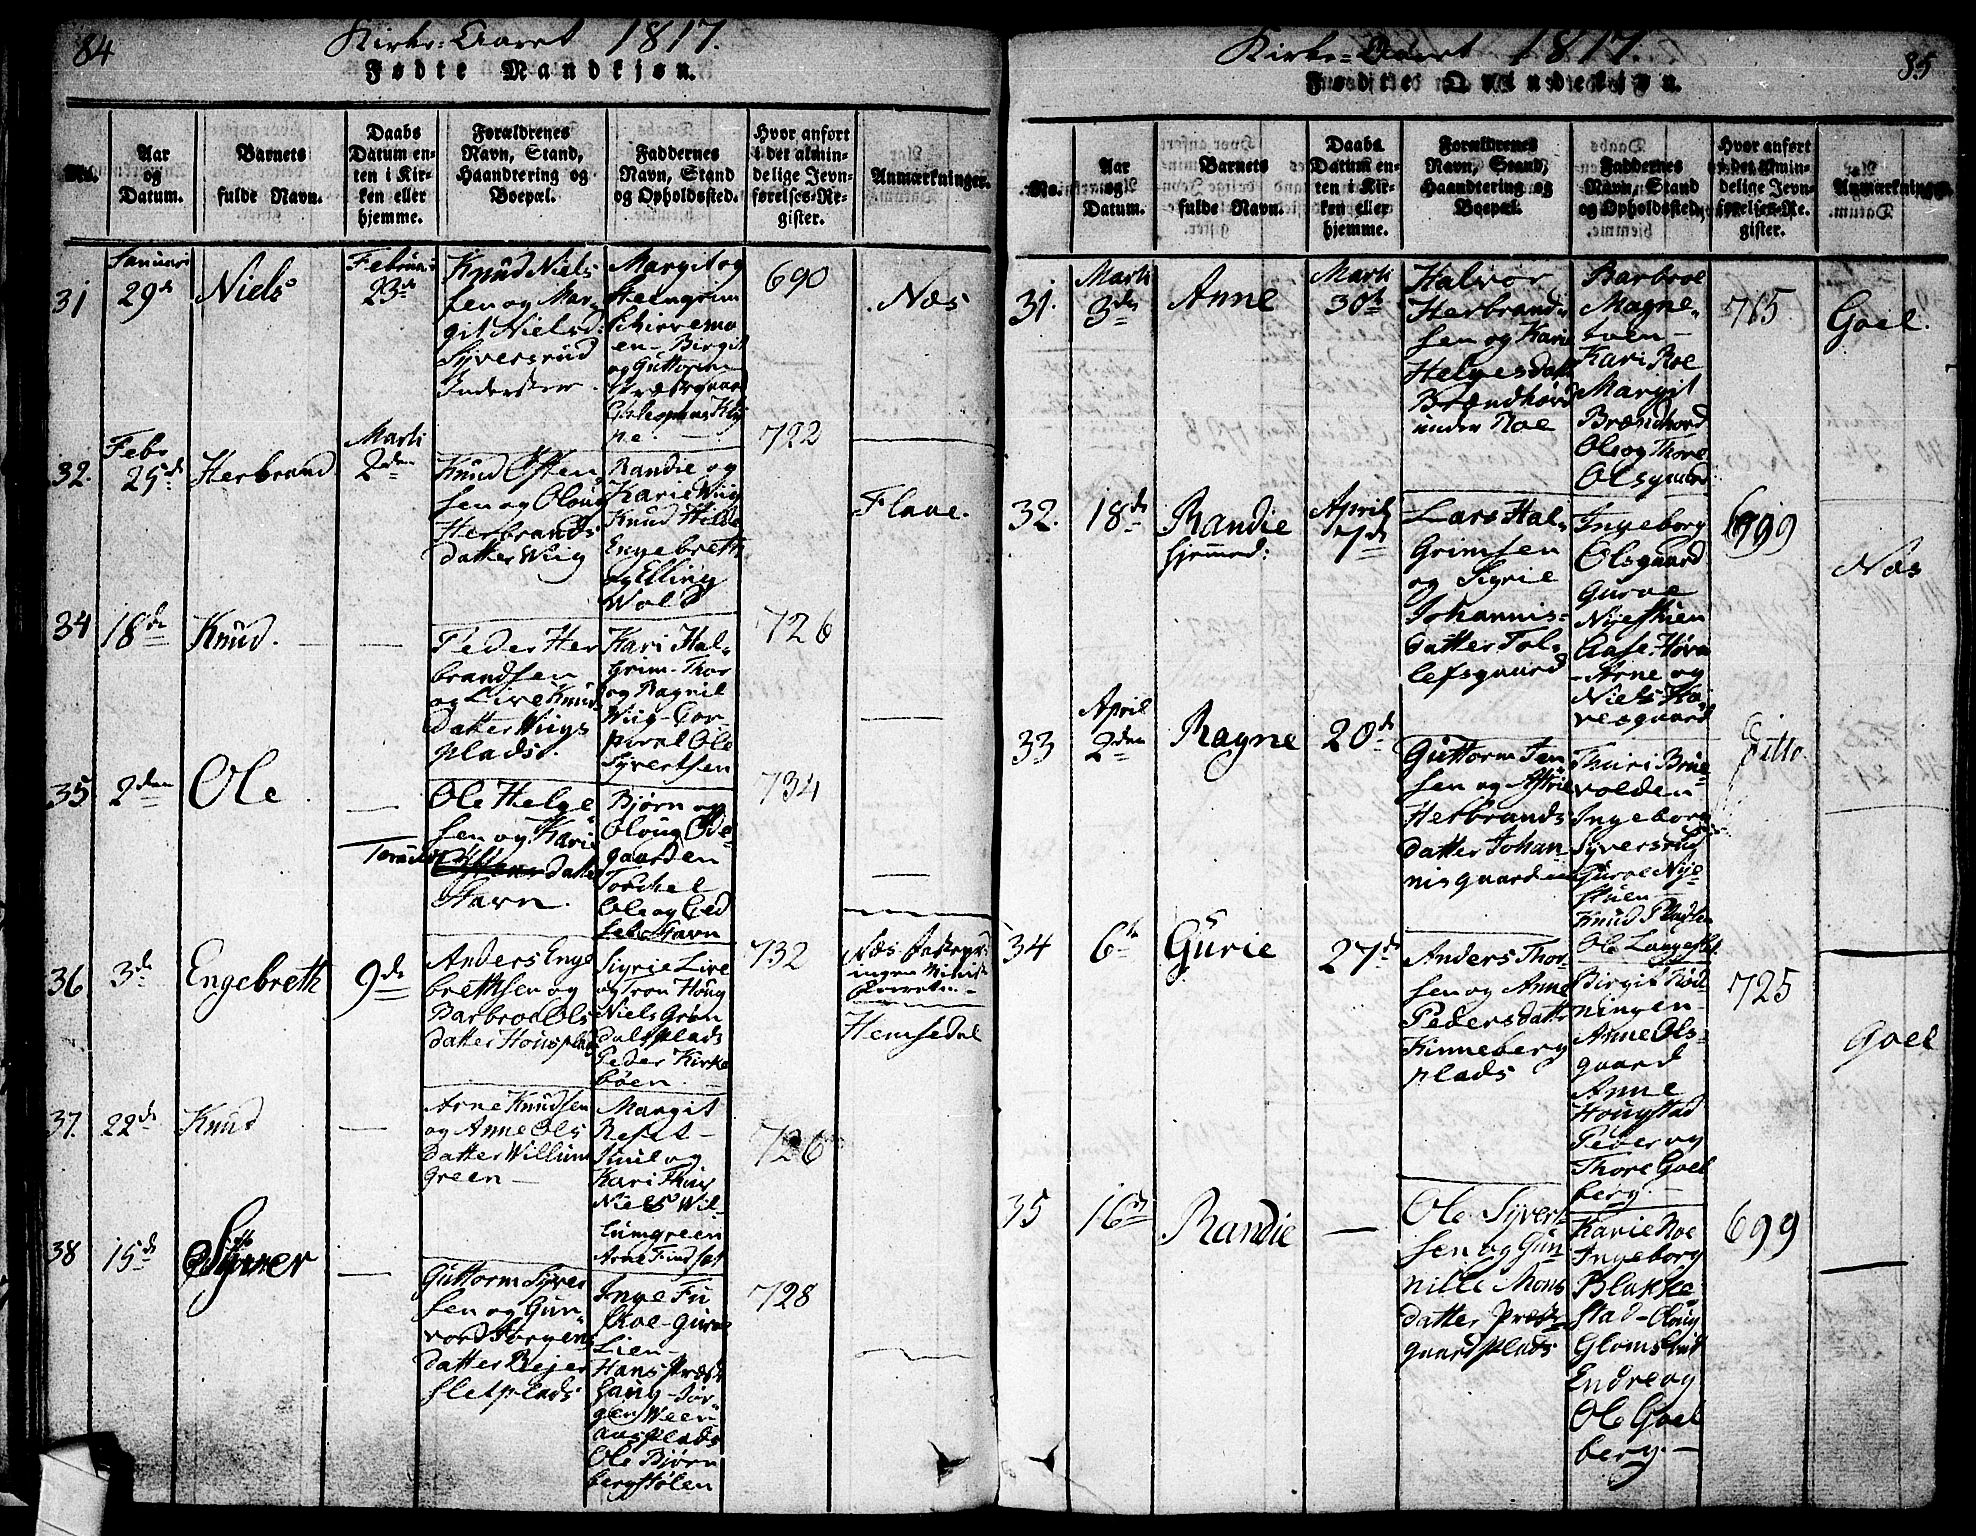 84
Kirke-Aaret 1817.
Fødte Mandkjøn.
No.
Aar
og
Datum.
Barnets
fulde Navn.
Daabs
Datum en-
ten i Kir-
ken eller
hjemme.
Forældrenes
Navn, Stand,
Haandtering og
Boepæl.
Faddernes
Navn, Stand
og Opholdssted.
Hvor anført
i det almin-
delige Jevn-
førelses-Re-
gister.
Anmærkninger.
31
Januari
29de
Niels
Februari
23de
Knud Niels
sen og Mar-
git Nielsd:
Syversrud
Margit og
Steengrim
Skirvemo
en - Birgit
og Guttorm
690
Næs
32.
Febr
25de
Herbrand
Marti
2den
Knud Østen
sen og Oloug
Herbrands
datter Wiig
Randie og
Karie Wiig
Knud Hilde
Engebreth
og Elling
Wold
722
Flaae.
34
18de
Knud.
Peder Her
brandsen
og Live Knuds
datter Wiigs
plads.
Kari Hal-
grim - Thor
og Ragnil
Wiig - Cor-
poral Ole
Syvertsen
726
35
2den
Ole
Ole Helge
sen og Kari
datter
Stavn.
Bjørn og
Oloug Øde-
gaarden
Torchel
Ole og
Stavn
734
36
3de
Engebreth
9de
Anders Enge
brethsen og
Barbroe Ols
datter Housplads
Sigrie Live
og Tron Houg
Niels Grøn
dalsplads
Peder Kirke
bøen
732
Hemsedal
37.
22de
Knud
Arne Knudsen
og Anne Ols
datter Willum
green
Margit
Kari
Niels Wil-
lumgreen
Arne Findset
726
38
15de
Syver
Guttorm Syver
sen og Gun-
vord Jørgens
datter Bejer
sletplads
Inge Fu
skoe - Gurve
Lien -
Hans Præste
houg - Jør-
gen Ween-
aasplads
Ole Bjørn
bergstølen
728
85
Kirke-Aaret 1817.
Fødte Qvindekjøn.
No.
Aar
og
Datum.
Barnets
fulde Navn.
Daabs
Datum en-
ten i Kir-
ken eller
hjemme.
Forældrenes
Navn, Stand,
Haandtering og
Boepæl.
Faddernes
Navn, Stand
og Opholdssted.
Hvor anført
i det almin-
delige Jevn-
førelses-Re-
gister.
Anmærkninger.
31.
Marti
3de
Anne
Marti
30te
Halvor
Herbrand-
sen og Kari
Helgesdatter
Brændhørd
under Roe
Barbroe
Magne-
toen -
Kari Roe
Margit
Brændhord
Ole og Thore
Olsgaard
715
Goel.
32.
18de
Randie
hjemmed:
April
7de
Lars Hal-
Grimsen
og Sigrie
Johannis-
datter Tol-
lefsgaard
Ingeborg
Olsgaard
Gurve
Nyestuen
Aase
Arne og
Niels
vesgaard
699
Næs
33
April
2den
Ragne
20de
Guttorm Jen
sen og Astrie
Herbrands
datter Johan-
nisgaarden
Thuri Brue-
volden
Ingeborg
Syversrug
Gurve Nye-
stuen -
Knud
Ole
Ditto.
34
6te
Gurie
27de
Anders Thor-
sen og Anne
Pedersdatter
Finneberg
plads
Birgit Rød-
ningen -
Anne Ols-
gaard
Anne
Hougstad
Peder og
Thore Goel
berg.
725
Goel
35
16de
Randie
Ole Syvert-
sen og Gun
nille Mons
datter Præste-
gaardsplads
Karie Roe
Ingeborg
Blakke-
stad - Oloug
Glomsrud
Endre og
Ole Goel
berg. -
699